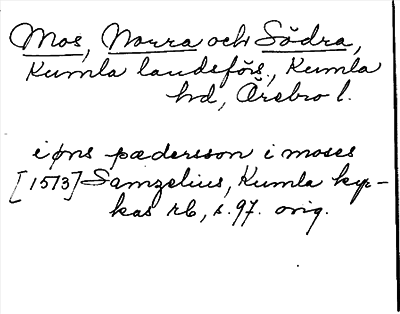 Mos, Norra och Södra,
Kumla landsförs., Kumla
hd, Örebro l.
iøns pædersson i moses
[1573] Samzelius, Kumla kyr-
kas rb, s. 97. orig.